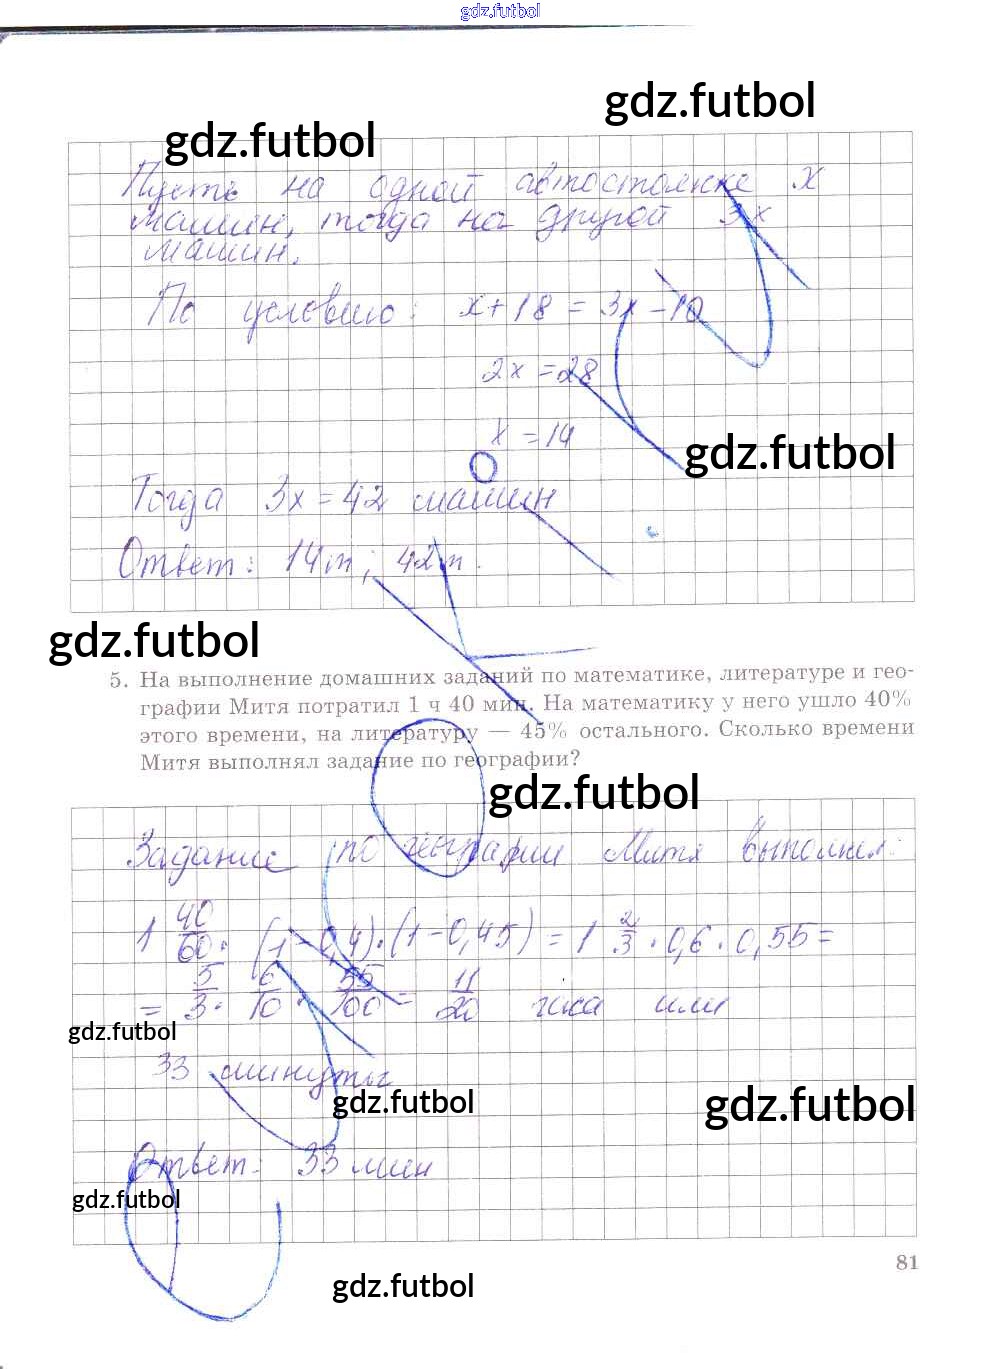 gdz.futbol
gdz.futbol
gdz.futbol
Пусть на одной автостоянке x
машин, тогда на другой 3x
машин.
По условию: x+18 = 3x-10
2x = 28
x = 14
gdz.futbol
Тогда 3x = 42 машин
Ответ: 14 m; 42 m.
gdz.futbol
5. На выполнение домашних заданий по математике, литературе и гео-
графии Митя потратил 1 ч 40 мин. На математику у него ушло 40%
этого времени, на литературу — 45% остального. Сколько времени
Митя выполнял задание по географии?
gdz.futbol
Задание по географии Митя выполнял:
1 40/60 · (1-0,4)·(1-0,45) = 1 2/3 · 0,6 · 0,55 =
= 5/3 · 6/10 · 55/100 = 11/20 часа или
gdz.futbol
33 минуты
gdz.futbol
gdz.futbol
Ответ: 33 мин
gdz.futbol
81
gdz.futbol